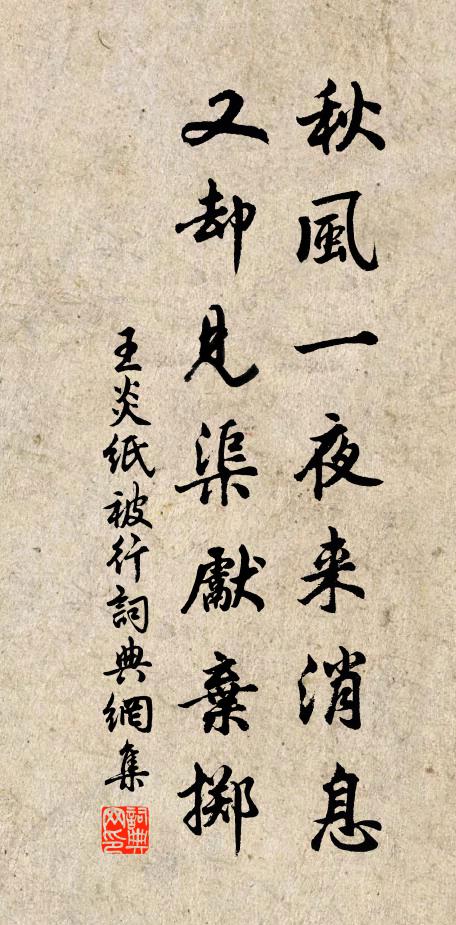 秋風一夜来消息
又却見渠獻棄擲
王炎紙被行詞典網集
詞典网印